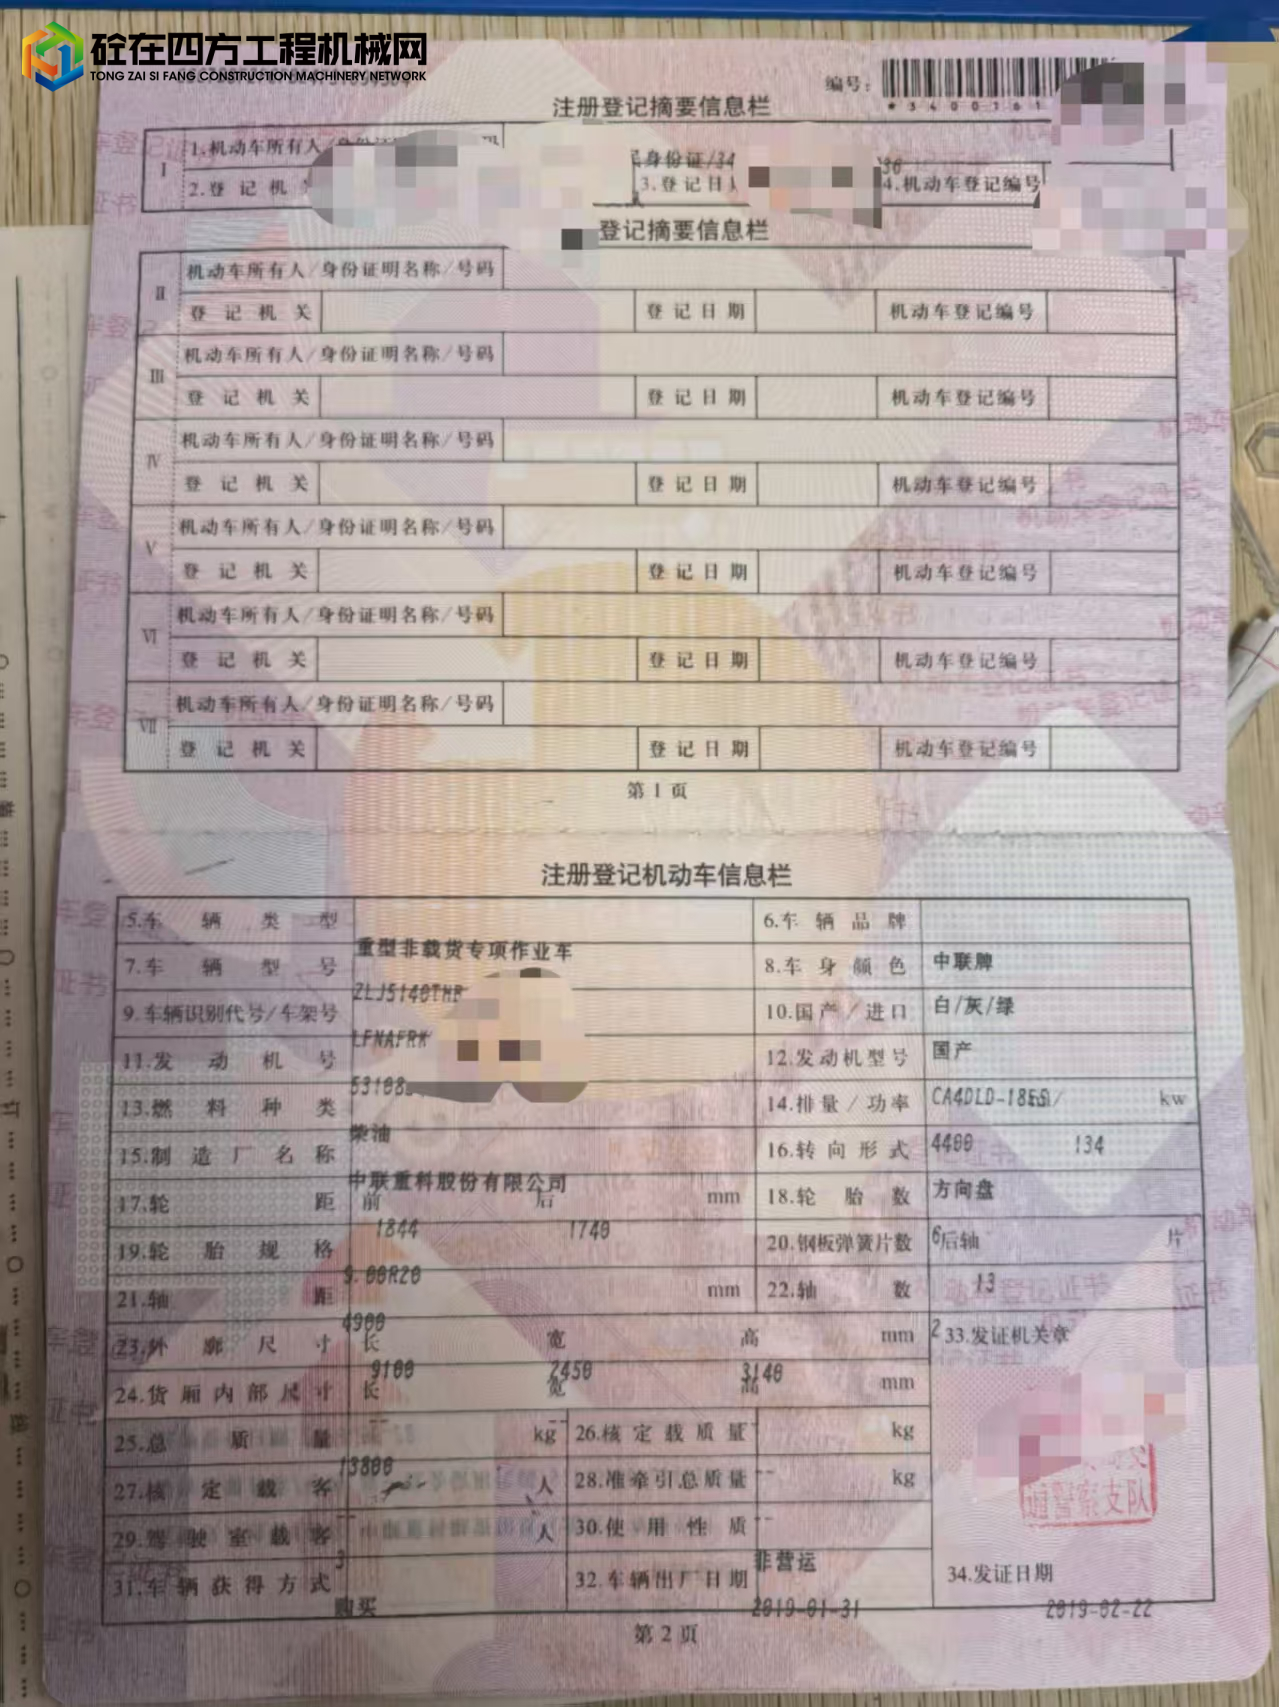 砼在四方工程机械网
TONG ZAI SI FANG CONSTRUCTION MACHINERY NETWORK
编号:
*3400161
注册登记摘要信息栏
I
1.机动车所有人/身份证
身份证/34
2.登记机关
3.登记日
4.机动车登记编号
登记摘要信息栏
II
机动车所有人/身份证明名称/号码
登记机关 登记日期 机动车登记编号
III
机动车所有人/身份证明名称/号码
登记机关 登记日期 机动车登记编号
IV
机动车所有人/身份证明名称/号码
登记机关 登记日期 机动车登记编号
V
机动车所有人/身份证明名称/号码
登记机关 登记日期 机动车登记编号
VI
机动车所有人/身份证明名称/号码
登记机关 登记日期 机动车登记编号
VII
机动车所有人/身份证明名称/号码
登记机关 登记日期 机动车登记编号
第1页
注册登记机动车信息栏
5.车辆类型 6.车辆品牌
重型非载货专项作业车 中联牌
7.车辆型号 8.车身颜色
ZLJ5140THB 白/灰/绿
9.车辆识别代号/车架号 10.国产/进口
LFNAFRK 国产
11.发动机号 12.发动机型号
53108
13.燃料种类 14.排量/功率 CA4DLD- kw
柴油 4400 134
15.制造厂名称 16.转向形式
中联重科股份有限公司 方向盘
17.轮距 前 后 mm 18.轮胎数
1844 1740 6
19.轮胎规格 20.钢板弹簧片数 后轴 片
9.00R20 13
21.轴距 mm 22.轴数
4900 2
23.外廓尺寸 长 宽 高 mm 33.发证机关章
9100 2450 3140
24.货厢内部尺寸 长 宽 高 mm
-- -- --
25.总质量 kg 26.核定载质量 kg
13800 --
27.核定载客 人 28.准牵引总质量 kg
-- --
29.驾驶室载客 人 30.使用性质
3 非营运
警察支队
31.车辆获得方式 32.车辆出厂日期 34.发证日期
购买 2019-01-31 2019-02-22
第2页